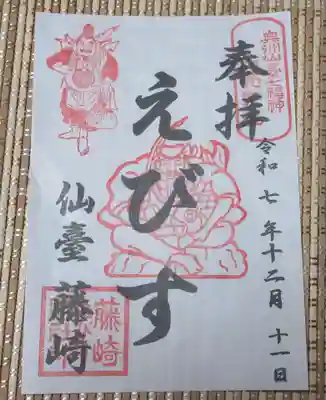 奉拝
令和七年十二月十一日
えびす
仙臺 藤崎
藤崎